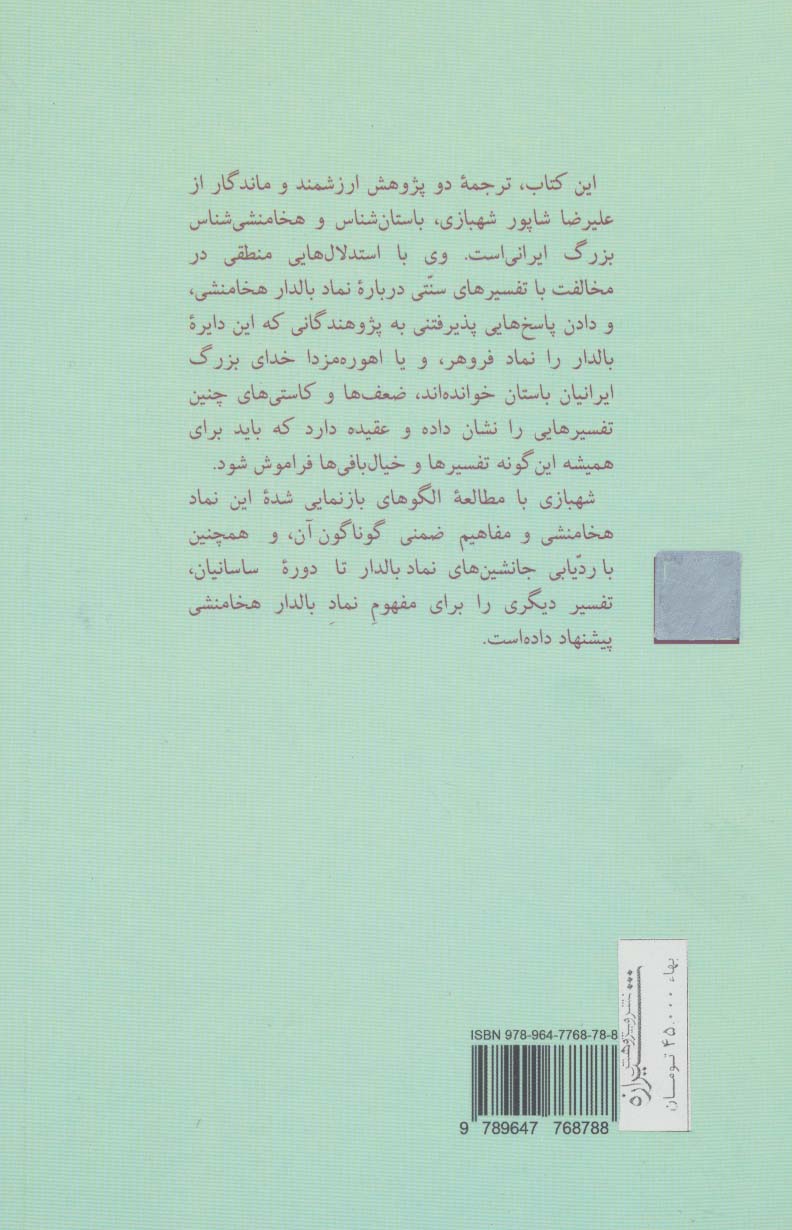 این کتاب، ترجمهٔ دو پژوهش ارزشمند و ماندگار از
علیرضا شاپور شهبازی، باستان‌شناس و هخامنشی‌شناس
بزرگ ایرانی‌است. وی با استدلال‌هایی منطقی در
مخالفت با تفسیرهای سنّتی دربارهٔ نماد بالدار هخامنشی،
و دادن پاسخ‌هایی پذیرفتنی به پژوهندگانی که این دایرهٔ
بالدار را نماد فروهر، و یا اهوره‌مزدا خدای بزرگ
ایرانیان باستان خوانده‌اند، ضعف‌ها و کاستی‌های چنین
تفسیرهایی را نشان داده و عقیده دارد که باید برای
همیشه این‌گونه تفسیرها و خیال‌بافی‌ها فراموش شود.
شهبازی با مطالعهٔ الگوهای بازنمایی شدهٔ این نماد
هخامنشی و مفاهیم ضمنی گوناگون آن، و همچنین
با ردّیابی جانشین‌های نماد بالدار تا دورهٔ ساسانیان،
تفسیر دیگری را برای مفهومِ نمادِ بالدار هخامنشی
پیشنهاد داده‌است.
نشر و پژوهش
شیرازه
بهاء ۴۵.۰۰۰ تومان
ISBN 978-964-7768-78-8
9 789647 768788